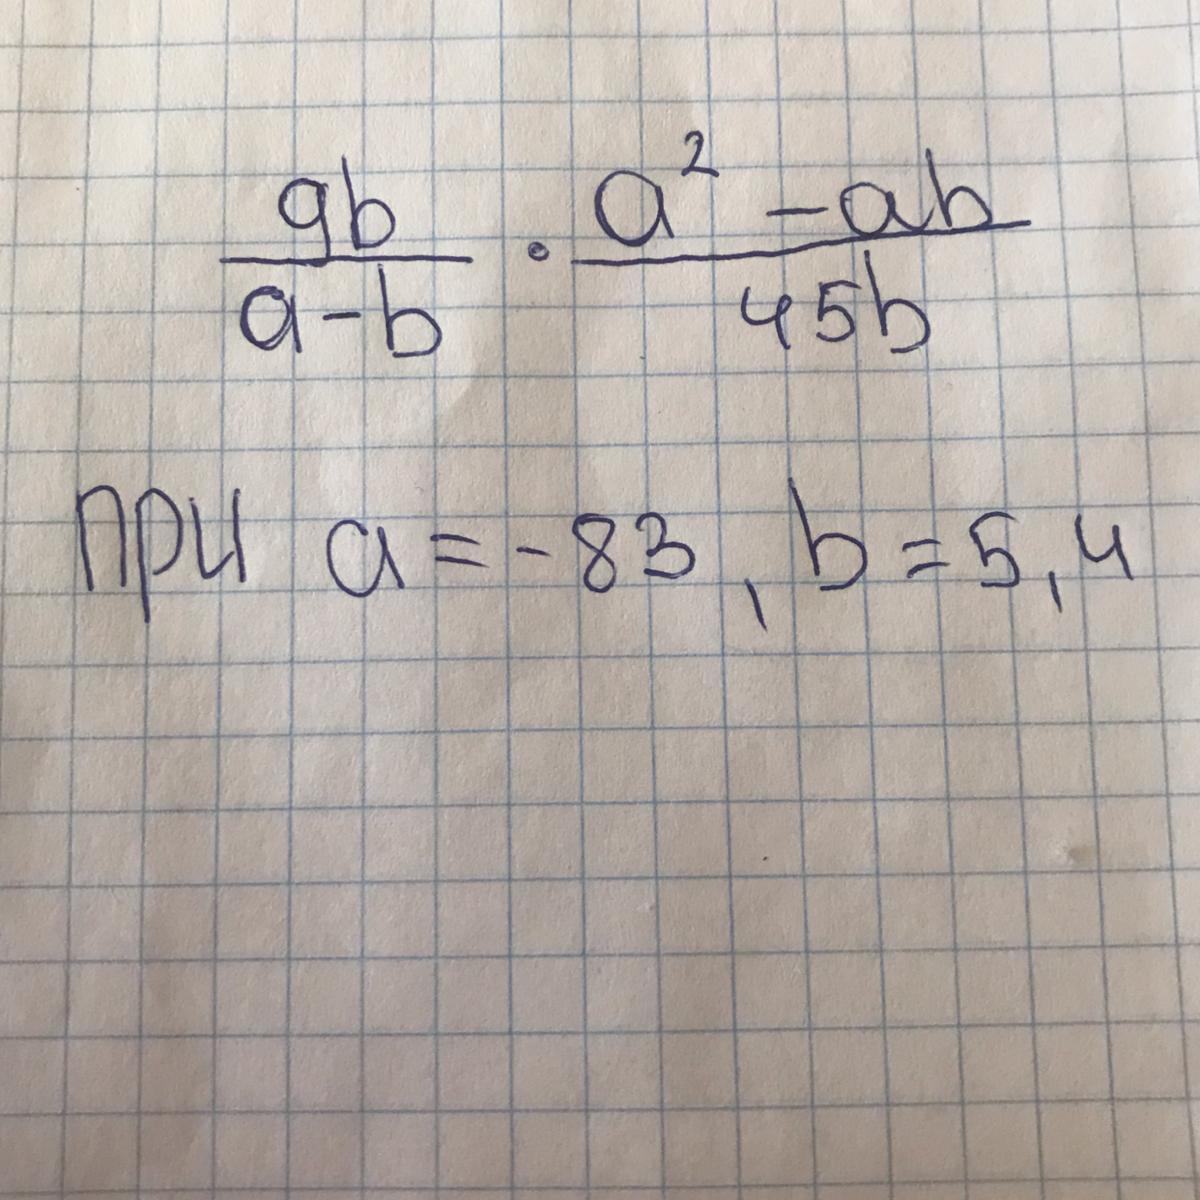 9b/(a-b) · (a² - ab)/(45b)
при a = -83, b = 5,4